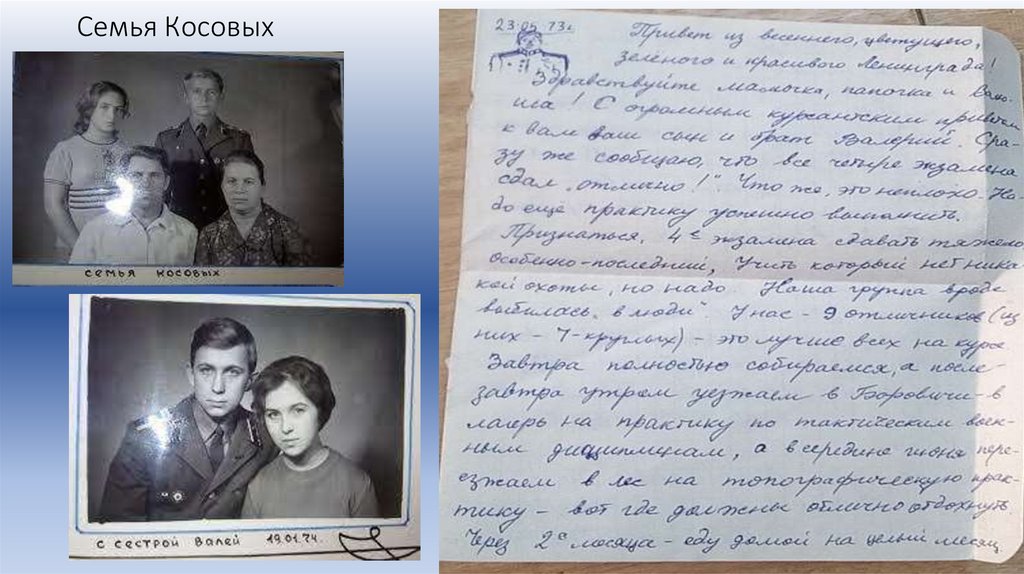 Семья Косовых
семья косовых
с сестрой Валей 19.01.74.
23.05.73г.
Привет из весеннего, цветущего,
зелёного и красивого Ленинграда!
Здравствуйте мамочка, папочка и
ша! С огромным курсантским приветом
к вам ваш сын и брат Валерий. Сра-
зу же сообщаю, что все четыре экзамена
сдал „отлично!". Что же, это неплохо. На-
до ещё практику успешно выполнить.
Признаться, 4е экзамена сдавать тяжело
особенно-последний, учить который нет ника-
кой охоты, но надо. Наша группа вроде
выбилась „в люди". У нас - 9 отличников (из
них - 7-круглых) - это лучше всех на курсе
Завтра полностью собираемся, а после-
завтра утром уезжаем в Боровичи-в
лагерь на практику по тактическим воен-
ным дисциплинам, а в середине июня пере-
езжаем в лес на топографическую прак-
тику - вот где должны отлично отдохнуть.
Через 2а месяца - еду домой на целый месяц.